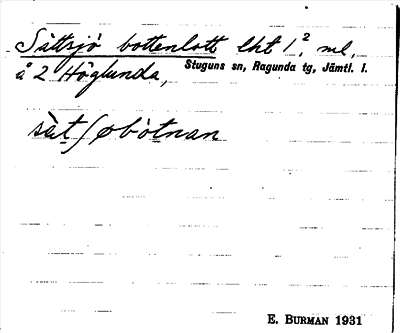 Sättsjö bottenlott lht 1.² ml.
å 2 Höglunda, Stuguns sn, Ragunda tg, Jämtl. l.
sä̀tʃøbòtnan
E. BURMAN 1931